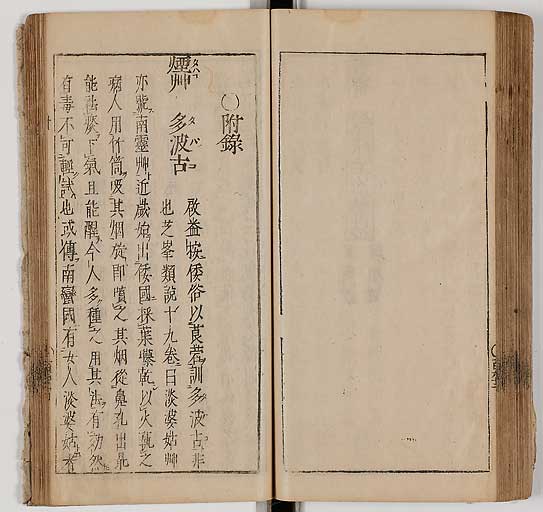 ○附錄
煙艸 タバコ 多波古 タバコ
啟益按倭俗以莨菪訓多波古非
也芝峯類說十九卷曰淡婆姑艸
亦號南靈艸近歲始出倭國採葉曝乾以火爇之
病人用竹筒吸其烟旋即噴之其烟從鼻孔出最
能祛痰下氣且能醒今人多種之用其法有効然
有毒不可輕試也或傳南蠻國有女人淡婆姑者